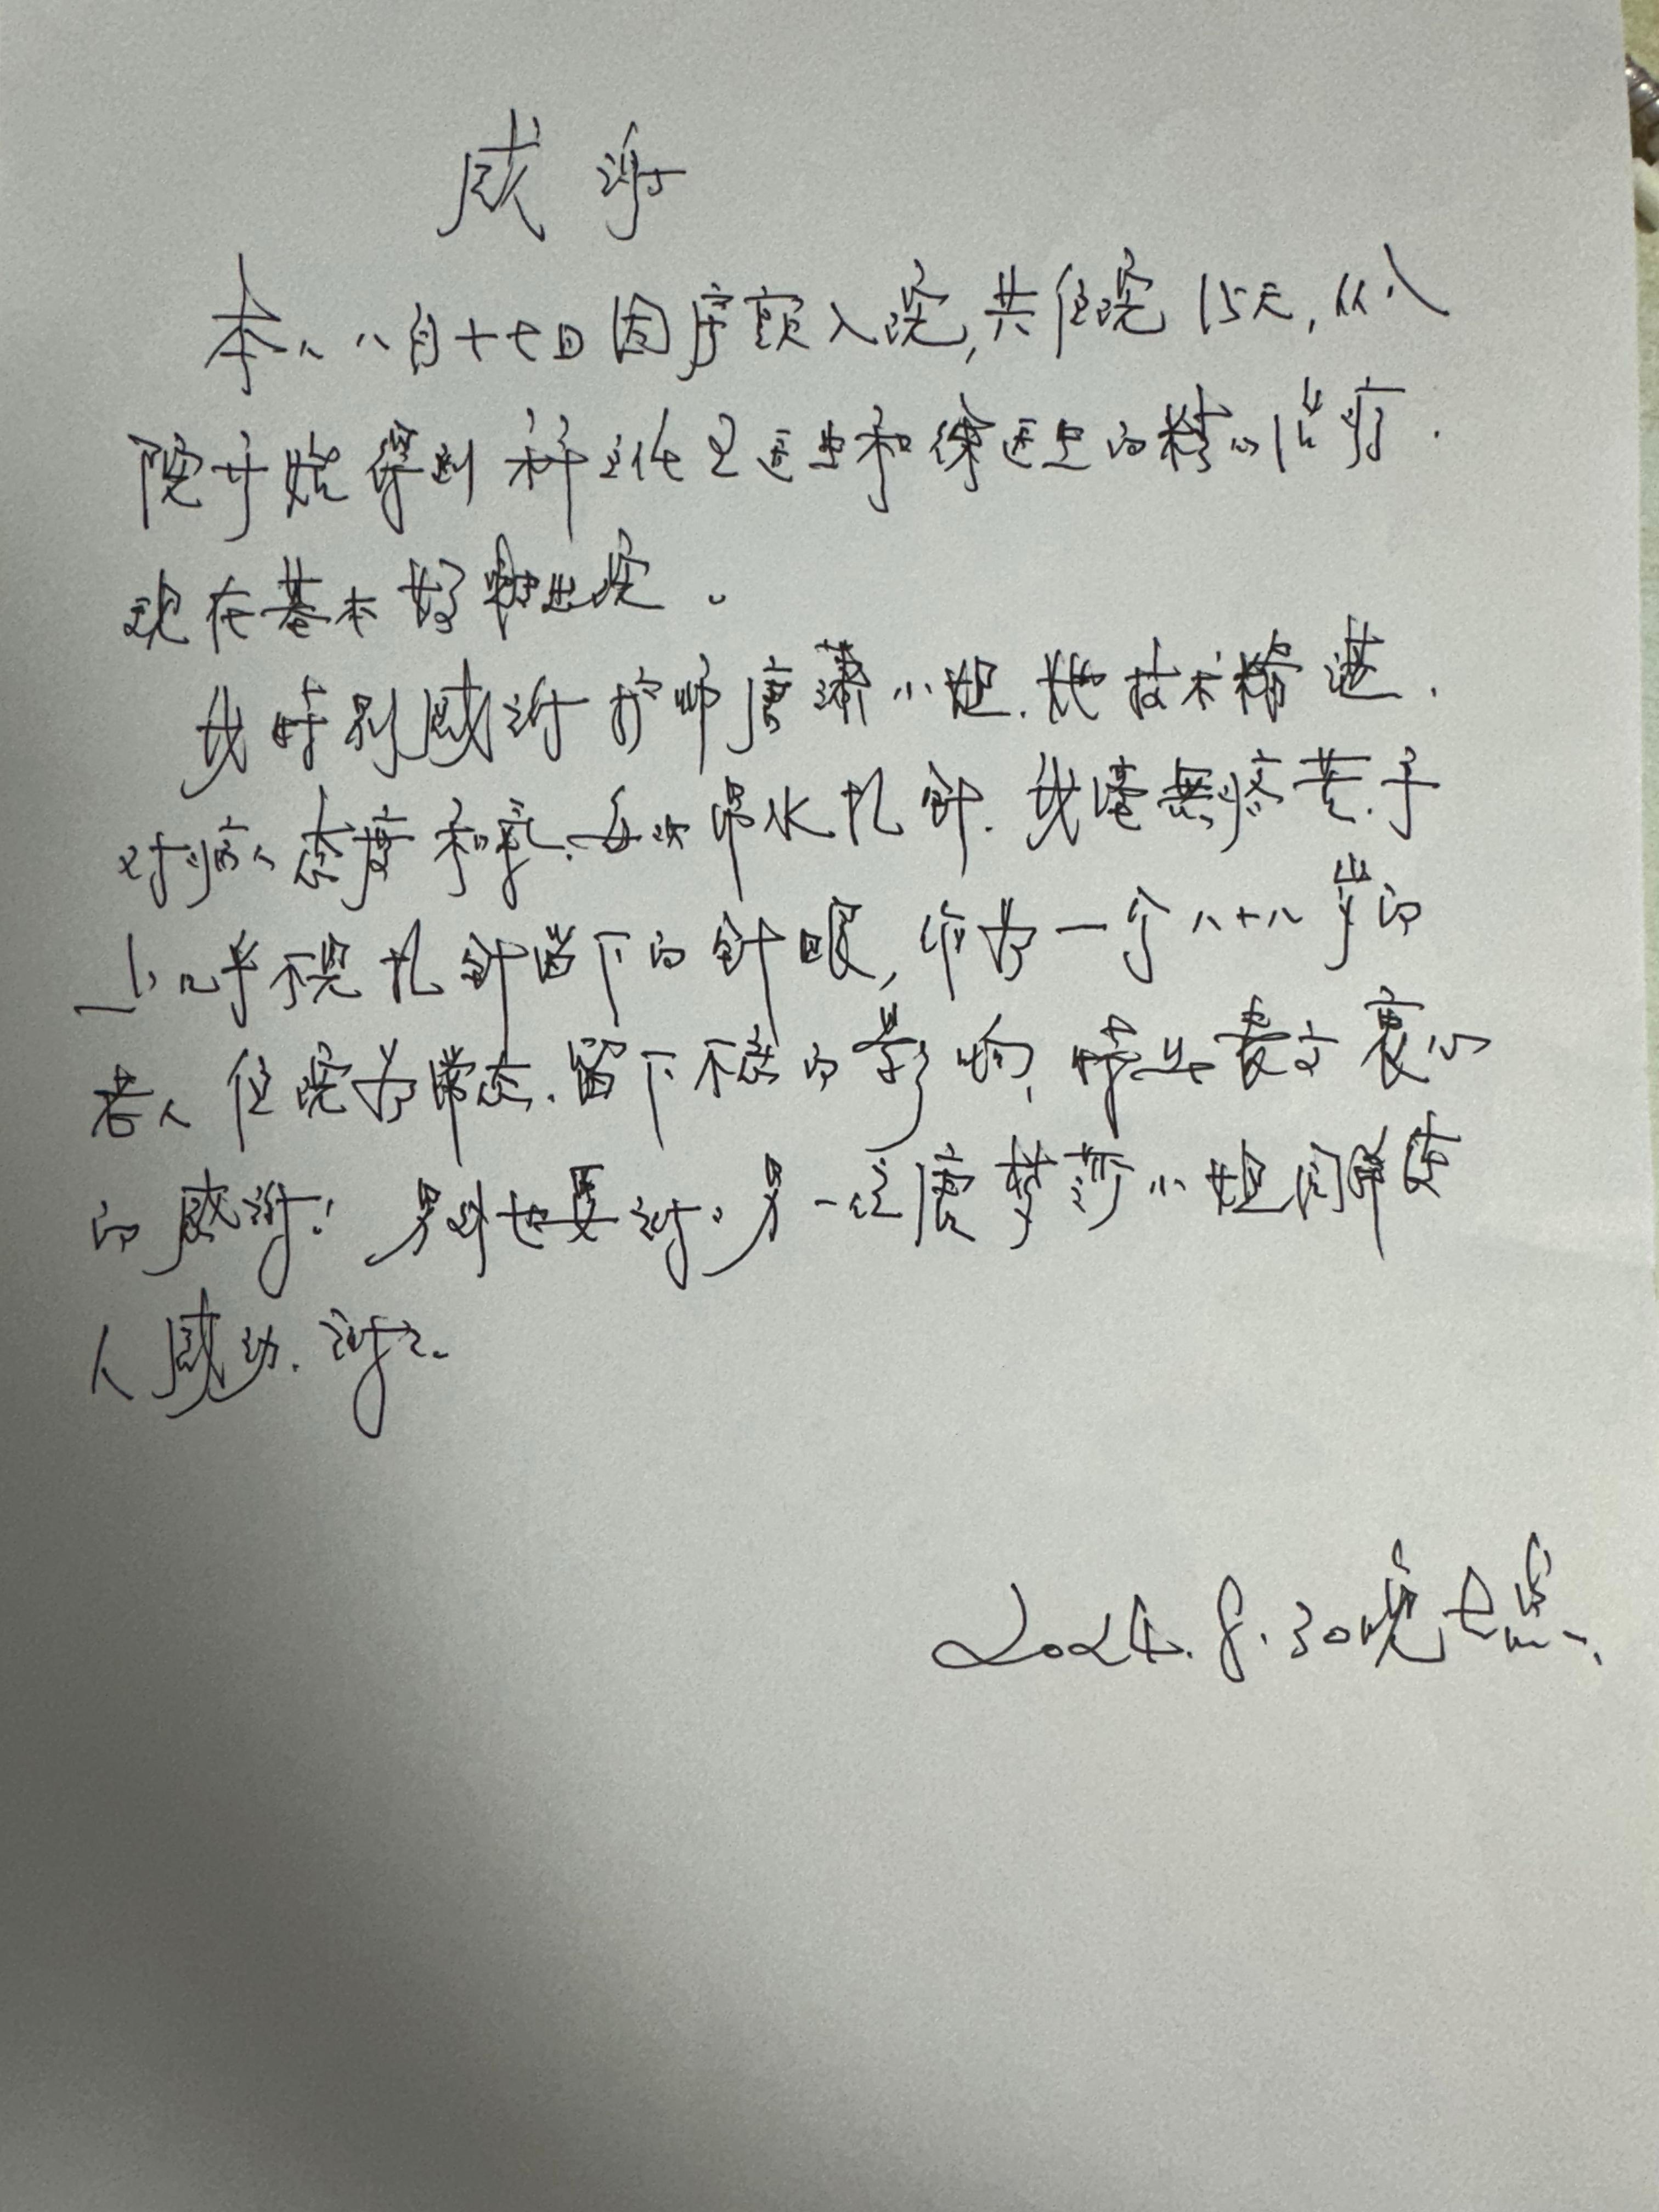 感谢
本人八月十七日因房颤入院,共住院15天,从入
院开始得到科主任王医生和徐医生的精心治疗.
现在基本好转出院。
我特别感谢护师唐潇小姐.她技术精湛.
对病人态度和气.每次吊水扎针.我毫無痛苦.手
上几乎不见扎针留下的针眼,作为一个八十八岁的
老人住院为常态.留下不忘的影响,特此表立衷心
的感谢!另外也要谢谢另一位唐梦莎小姐同样使
人感动.谢谢.
2024.8.30晚七点.